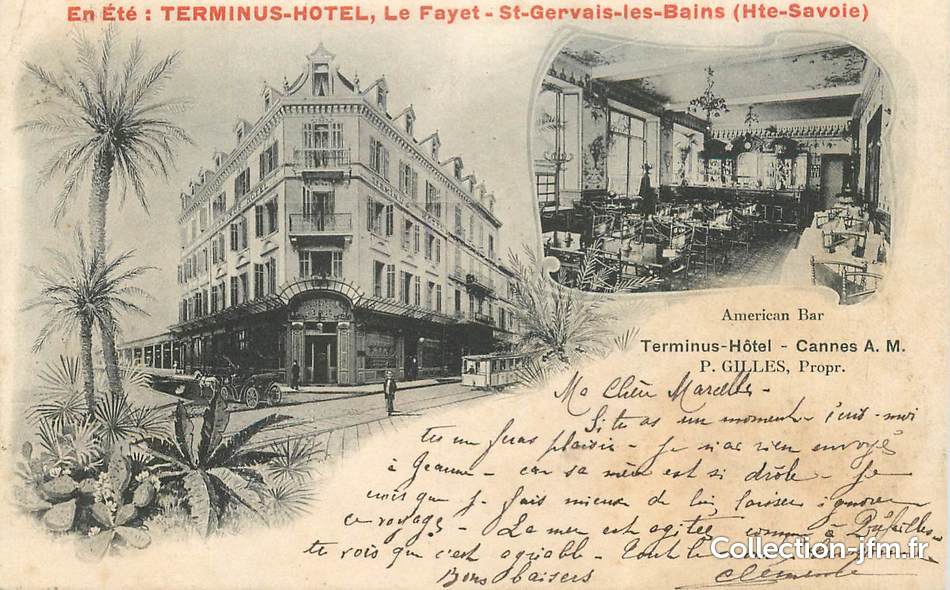 En Été : TERMINUS-HOTEL, Le Fayet - St-Gervais-les-Bains (Hte-Savoie)
TERMINUS HOTEL
American Bar
Terminus-Hôtel - Cannes A. M.
P. GILLES, Propr.
Ma Chère Marcelle -
Si tu as un moment écris-moi
tu me feras plaisir - Je n'ai rien envoyé
à Jeanne - car sa mère est si drôle - Je
crois que je fais mieux de lui laisser ignorer
ce voyage - La mer est agitée comme à
tu vois que c'est agréable - Tout le
Bons baisers
Clémence
Collection-jfm.fr